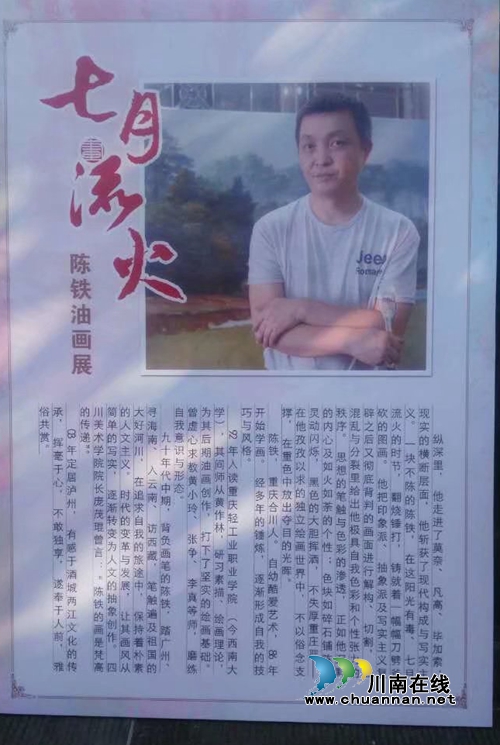 七月流火
陈铁油画展
Jeep
纵深里，他走进了莫奈、凡高、毕加索
现实的横断层面，他斩获了现代构成与写实
义。一块不陈的陈铁，在这阳光有毒、七月
流火的时节，翻烧锤打，铸就着一幅幅刀劈
砍的图画。他把印象派、抽象派及写实主义
辟之后又彻底背判的画面进行解构、切割、
混乱与分裂里给出他极具自我色彩和个性张
秩序。思想的笔触与色彩的渗透，正如他
的内心及如火如荼的个性；色块如碎石铺
灵动闪烁，黑色的大胆挥洒，不失厚重庄
在他孜孜以求的独立绘画世界中，不以俗念支
撑，在重色中放出夺目的光辉。
陈铁，重庆合川人。自幼酷爱艺术，86年
开始学画，经多年的锤炼，逐渐形成自我的技
巧与风格。
92年入读重庆轻工业职业学院（今西南大
学），其间师从黄作林，研习素描、绘画理论，
为其后期油画创作，打下了坚实的绘画基础。
曾虚心求教黄小玲、张争、李真等师，磨练
自我意识与形态。
九十年代中期，背负画笔的陈铁，踏广州、
寻海南、入云南、访西藏，笔触遍及祖国的
大好河川。在追求自我的旅途中，保持着朴素
的人文主义，时代的变革与发展，让其画风从
简单的写实，逐渐转变为人文的抽象创作。四
川美术学院院长庞茂琨曾言：。陈铁的画是梵高
的传递。
03年定居泸州，有感于酒城两江文化的传
承，挥毫于心，不敢独享，遂奉于人前，雅
俗共赏。
川南在线
www.chuannan.net